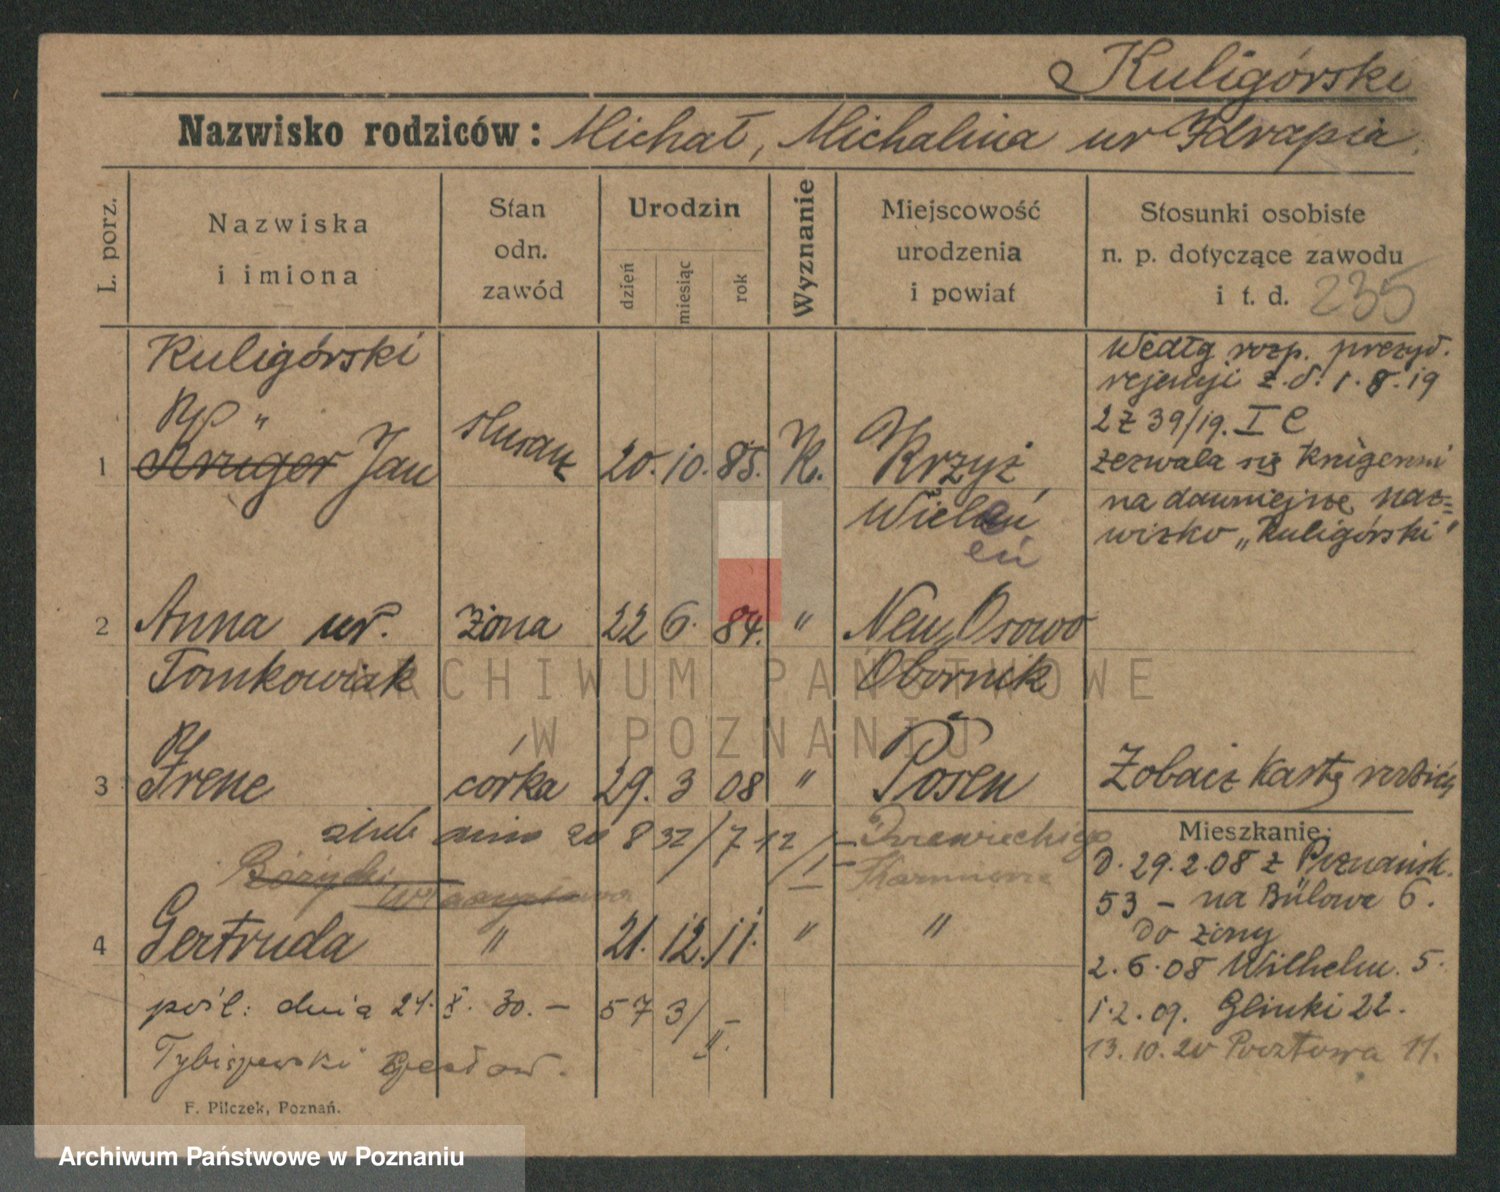 Kuligórski
Nazwisko rodziców: Michał, Michalina ur
L. porz.
Nazwiska i imiona
Stan odn. zawód
Urodzin
dzień
miesiąc
rok
Wyznanie
Miejscowość urodzenia i powiat
Stosunki osobiste n. p. dotyczące zawodu i t. d. 235
Kuligórski
1 Krüger Jan 20. 10. 85. K. Krzyż,
Wieleń
eń
Wedłg rozp. prezyd.
rejencyi z d. 1.8.19
2 Z 39/19. I C
zezwala się
na dawniejsze naz=
wisko „Kuligórski“
2 Anna ur. żona 22 6. 84. " Neu Osowo
Tomkowiak Obornik
3 Irene córka 29. 3 08 " Posen
Zobacz kartę rodzicy
ślub dnia 20 8 32/
4 Gertruda " 21. 12. 11. " "
pośl: dnia 21. X. 30. – 57 3/II.
Mieszkanie:
D. 29.2.08 z Poznańsk.
53 – na Bülowa 6.
Do żony
2.6.08 Wilhelm. 5.
1.2.09. Glinki 22.
13.10.20 Pocztowa 11.
F. Pilczek, Poznań.
ARCHIWUM PAŃSTWOWE
W POZNANIU
Archiwum Państwowe w Poznaniu